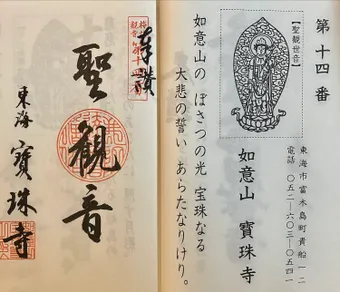 第十四番
【聖観世音】
如意山 寳珠寺
東海市富木島町貴船一二
電話 〇五二―六〇三―〇五四一
如意山の ぼさつの光 宝珠なる
大悲の誓い あらたなりけり。
奉讃
聖観音
東海 寳珠寺